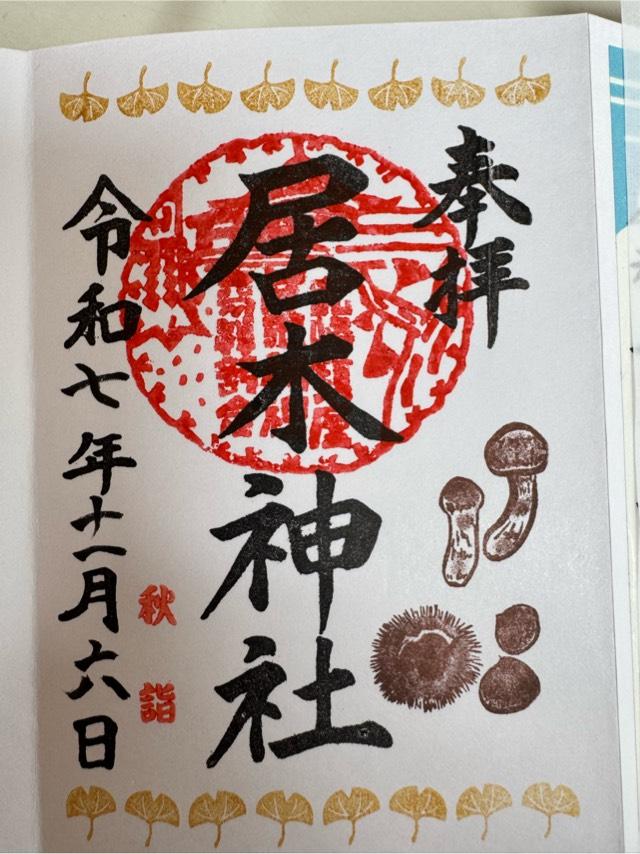 奉拝
居木神社
秋詣
令和七年十一月六日